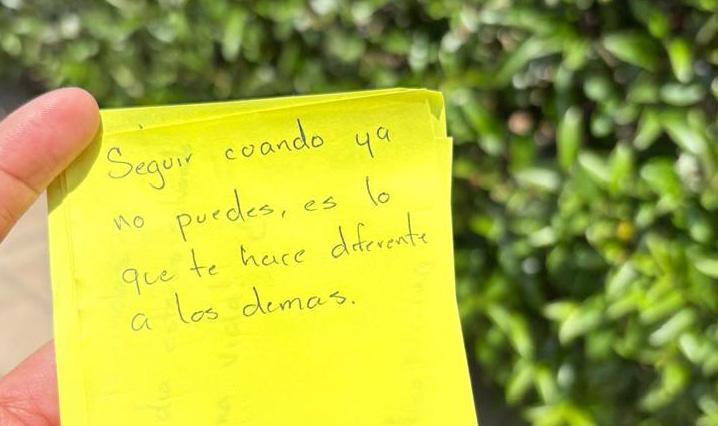 Seguir coando ya
no puedes, es lo
que te hace diferente
a los demas.